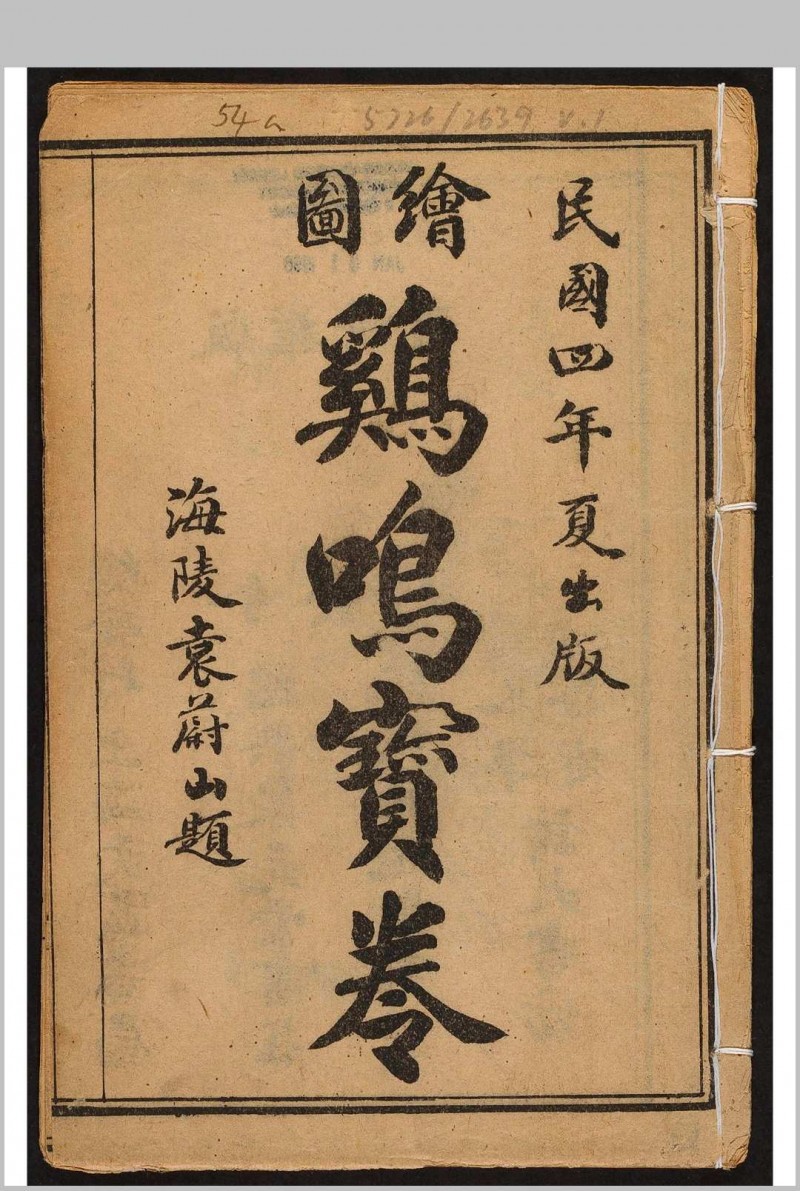 54a 5726/2639 v.1
民國四年夏出版
繪圖
鷄鳴寶卷
海陵袁蔚山題